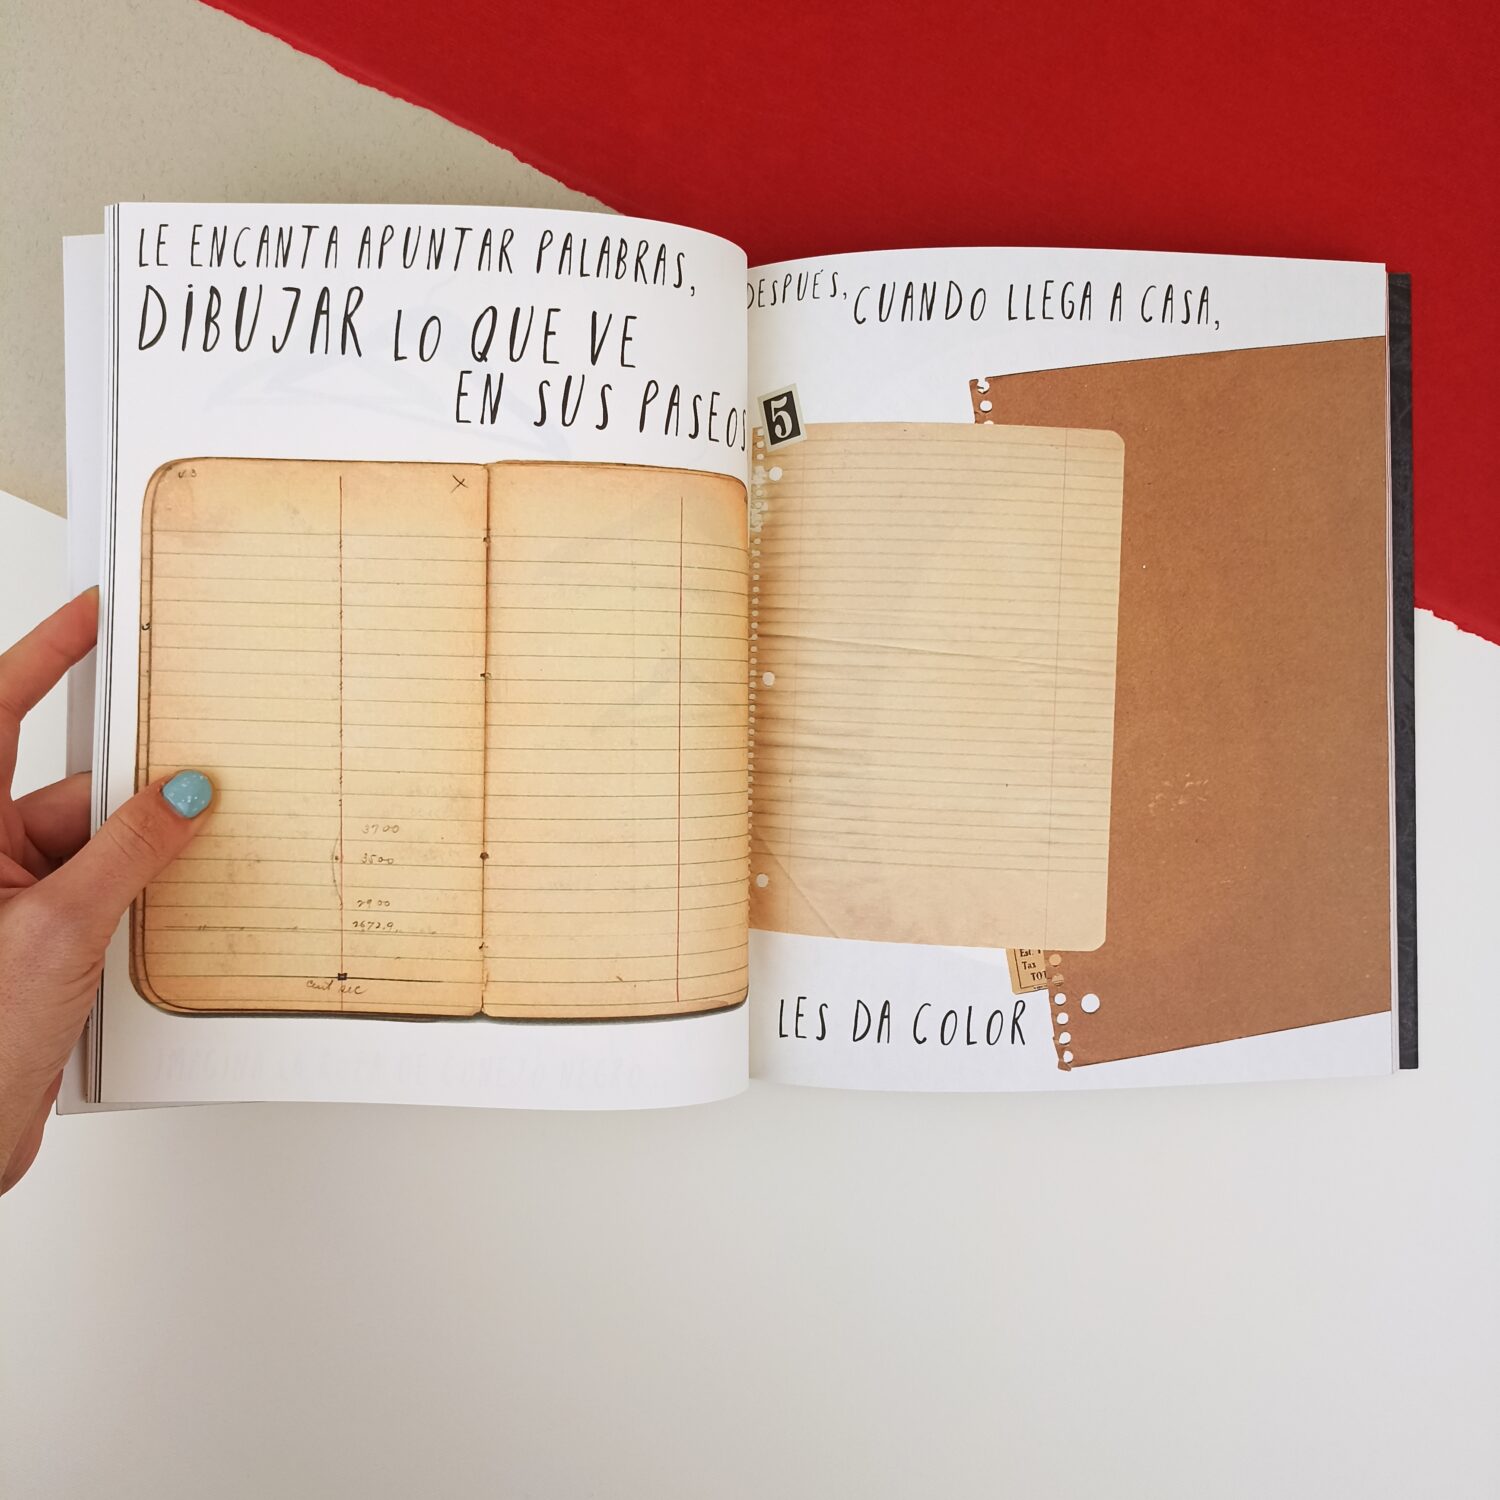 LE ENCANTA APUNTAR PALABRAS,
DIBUJAR LO QUE VE
EN SUS PASEOS
DESPUÉS, CUANDO LLEGA A CASA,
5
3700
3500
2900
2672.9
Est.
Tax
TOT
LES DA COLOR